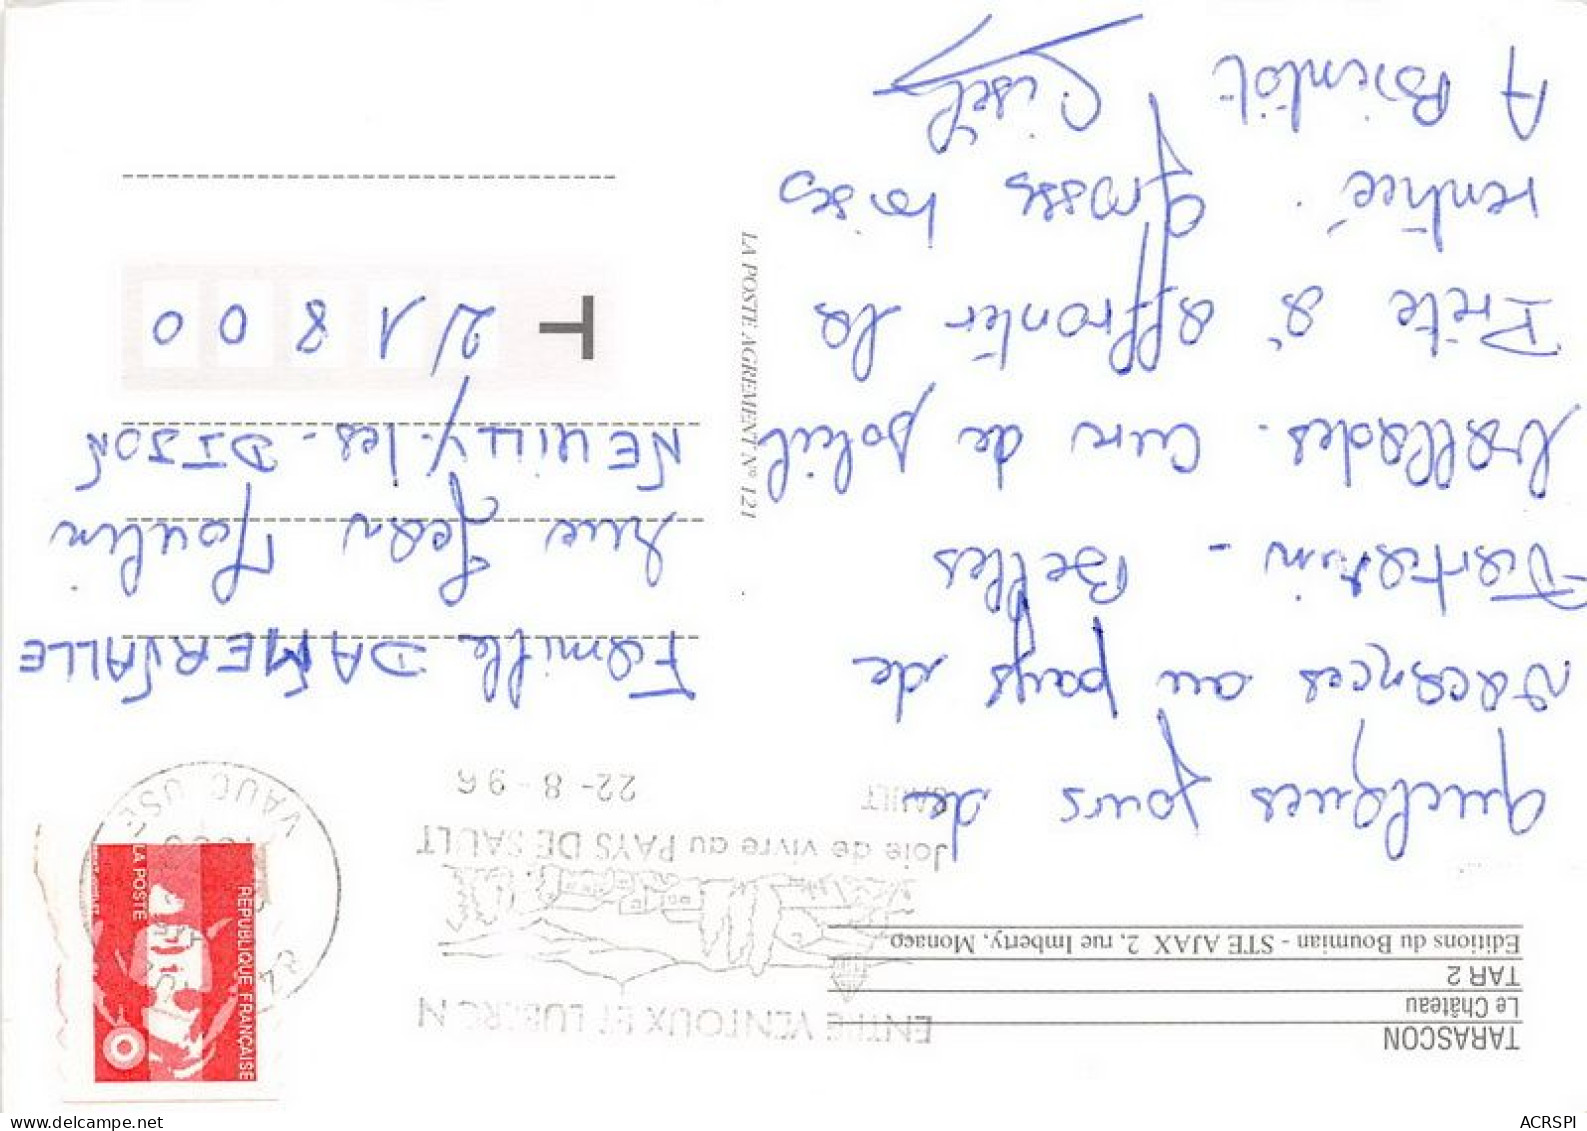 TARASCON
Le Château
TAR 2
Editions du Boumian - STE AJAX 2, rue Imberty, Monaco
quelques jours de
vacances au pays de
Tartarin - Belles
ballades. Cure de soleil
Prête à affronter la
rentrée. grosses bises
A Bientôt
LA POSTE AGREMENT N° 121
ENTRE VENTOUX ET LUBERON
Joie de vivre au PAYS DE SAULT
SAULT
22-8-96
84
VAUCLUSE
REPUBLIQUE FRANÇAISE
LA POSTE
Famille DAMERVALLE
rue Jean Moulin
NEUILLY-les-DIJON
T
21800
ACRSPI